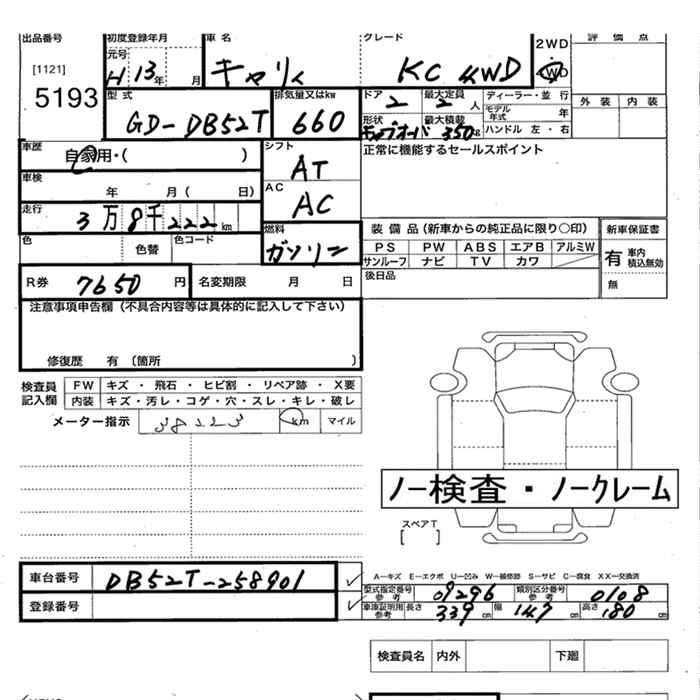 出品番号 初度登録年月 車 名 グレード 2WD 評 価 点
[1121] 元号 4WD
5193 H 13年 月 キャリィ KC 4WD
型 式 排気量又はkw ドア 最大定員 ディーラー・並 行 外 装 内 装
GD-DB52T 660 2 2人 モデル年式 年
形状 最大積載 ハンドル 左・右
350kg
車歴 自家用・( ) シフト 正常に機能するセールスポイント
AT
車検 年 月( 日) AC
AC
走行 3万8千222km
色 色替 色コード 燃料 装 備 品(新車からの純正品に限り○印) 新車保証書
ガソリン PS PW ABS エアB アルミW 有 車内積込無効
サンルーフ ナビ TV カワ
R券 7650円 名変期限 月 日 後日品 無
注意事項申告欄(不具合内容等は具体的に記入して下さい)
修復歴 有(箇所 )
検査員記入欄 FW キズ ・ 飛石 ・ ヒビ割 ・ リペア跡 ・ X要
内装 キズ・汚レ・コゲ・穴・スレ・キレ・破レ
メーター指示 38223 km マイル
ノー検査・ノークレーム
スペアT
[ ]
車台番号 DB52T-258901
A―キズ E―エクボ U―凹み W―補修跡 S―サビ C―腐食 XX―交換済
型式指定番号 参考 09296 類別区分番号 参考 0108
登録番号 車庫証明用 参考 長さ 339cm 幅 147cm 高さ 180cm
検査員名 内外 下廻